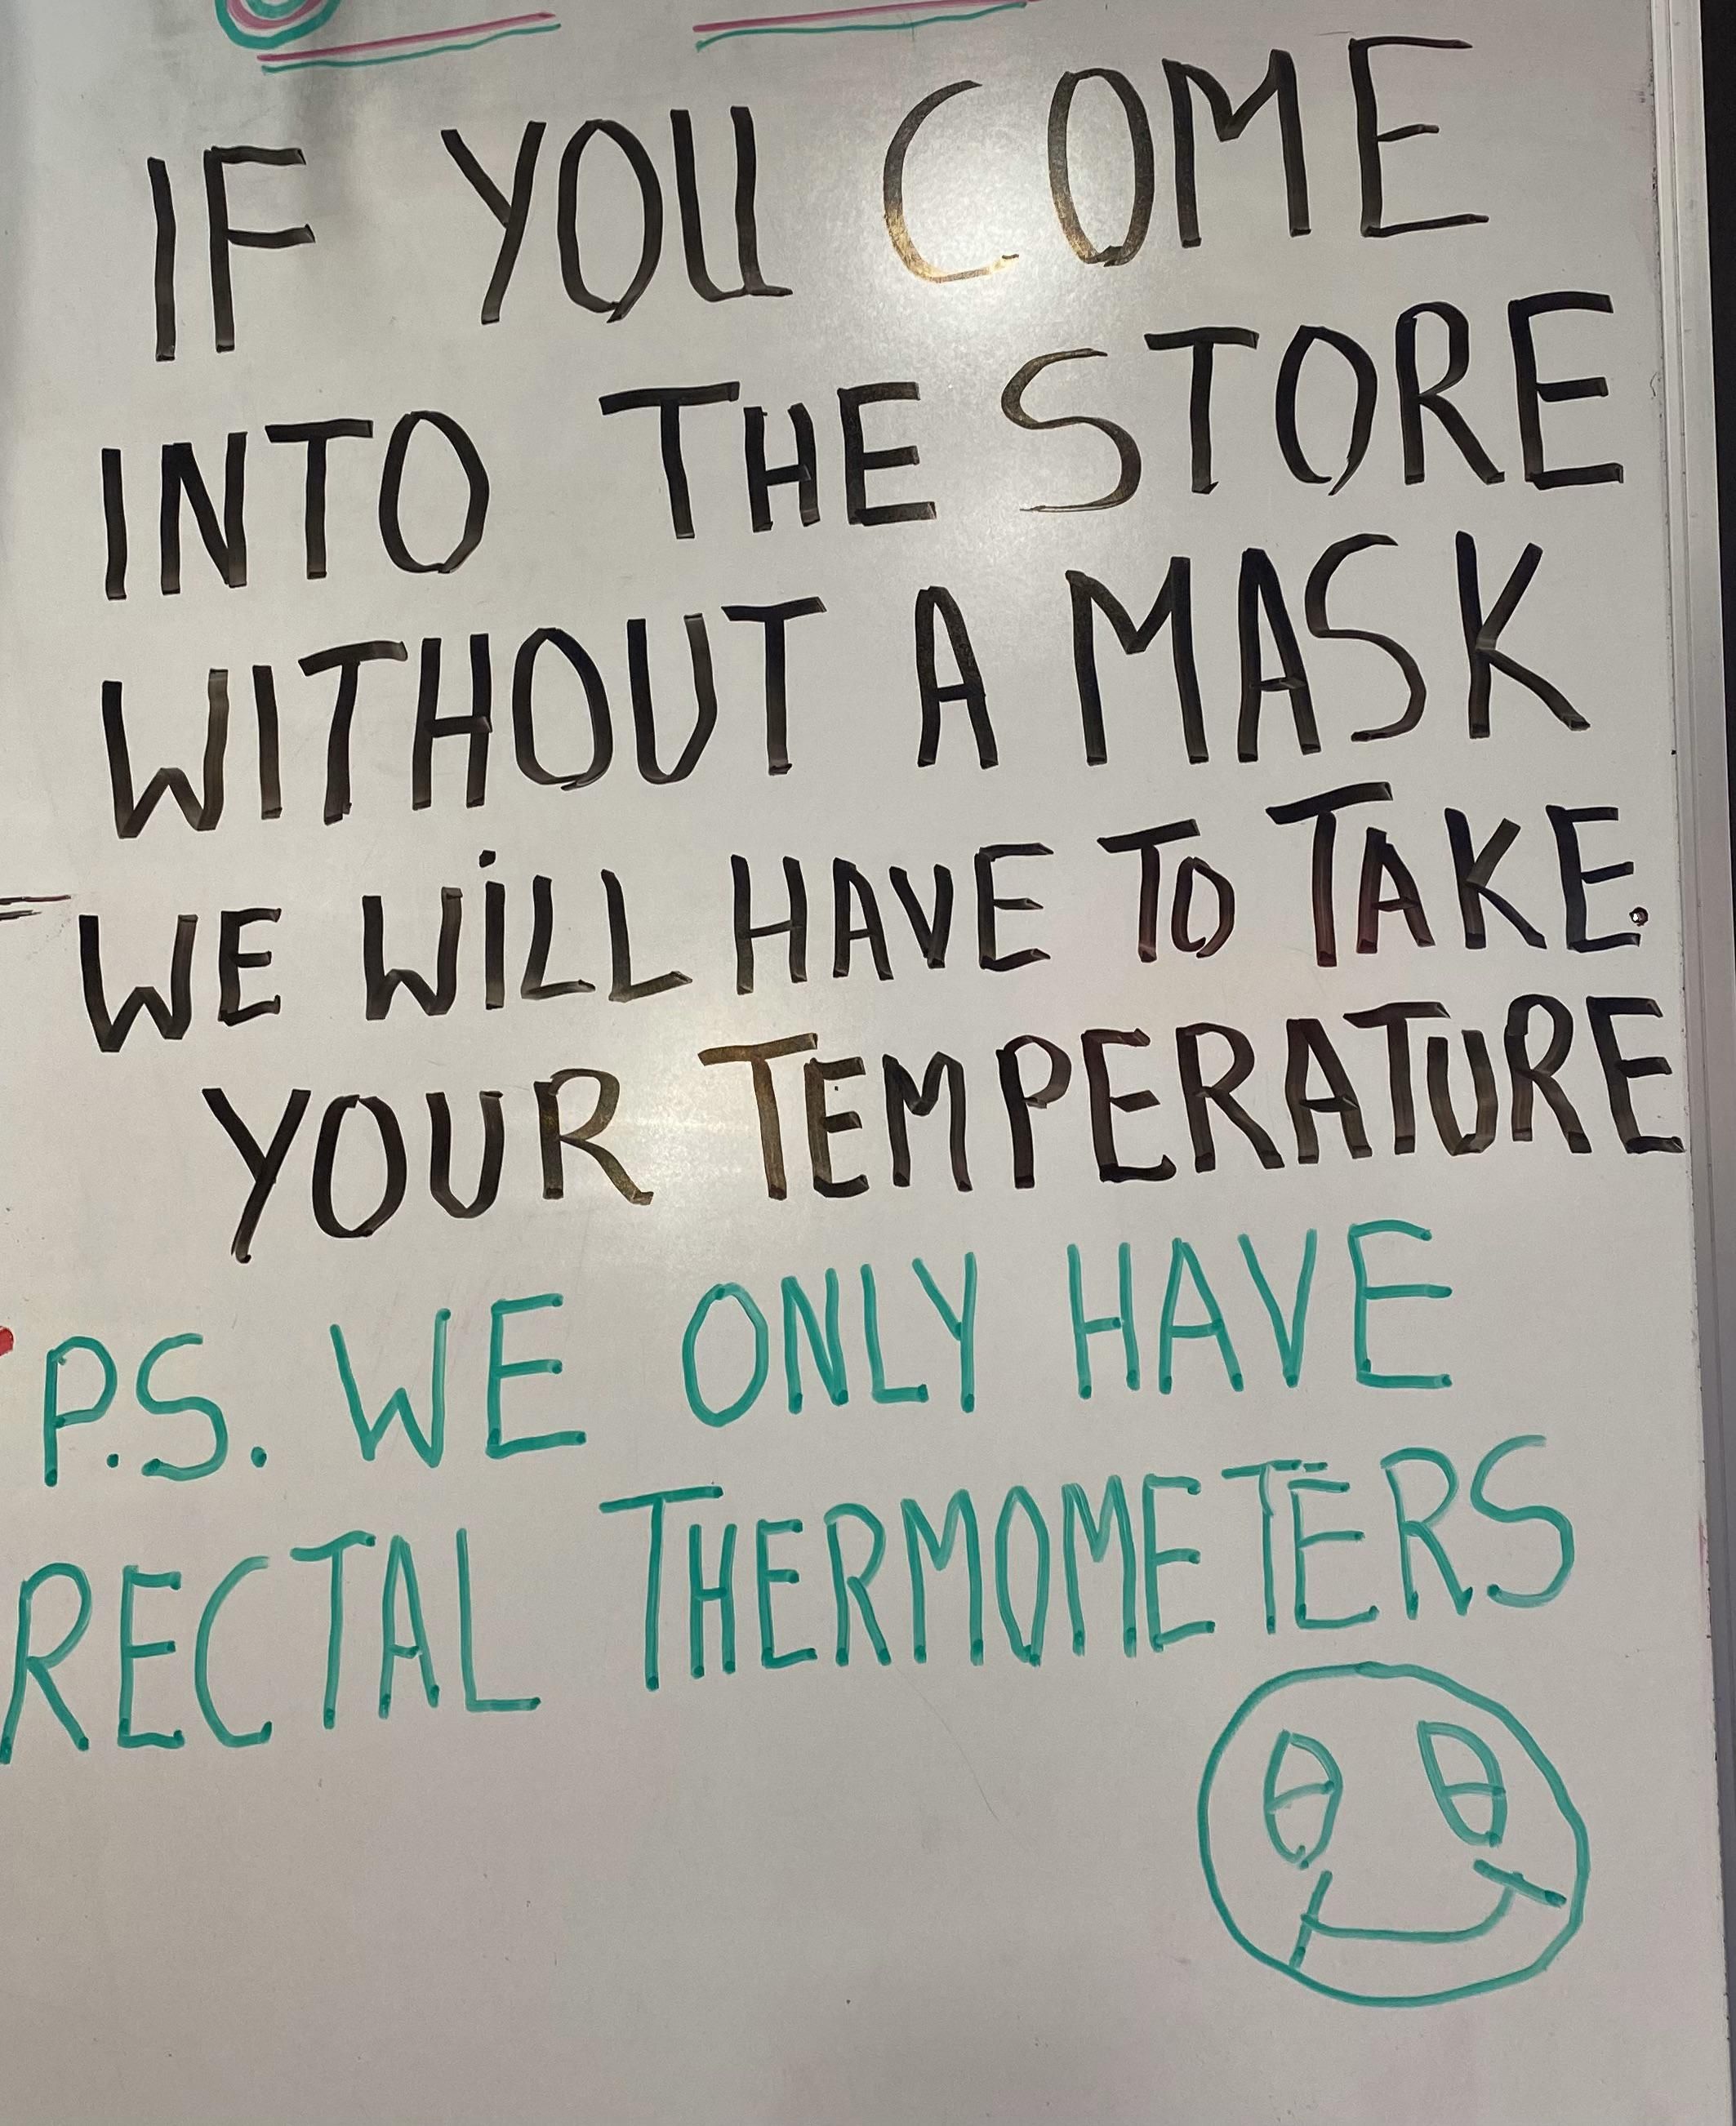 IF YOU COME
INTO THE STORE
WITHOUT A MASK
WE WiLL HAVE TO TAKE
YOUR TEMPERATURE
P.S. WE ONLY HAVE
RECTAL THERMOMETERS